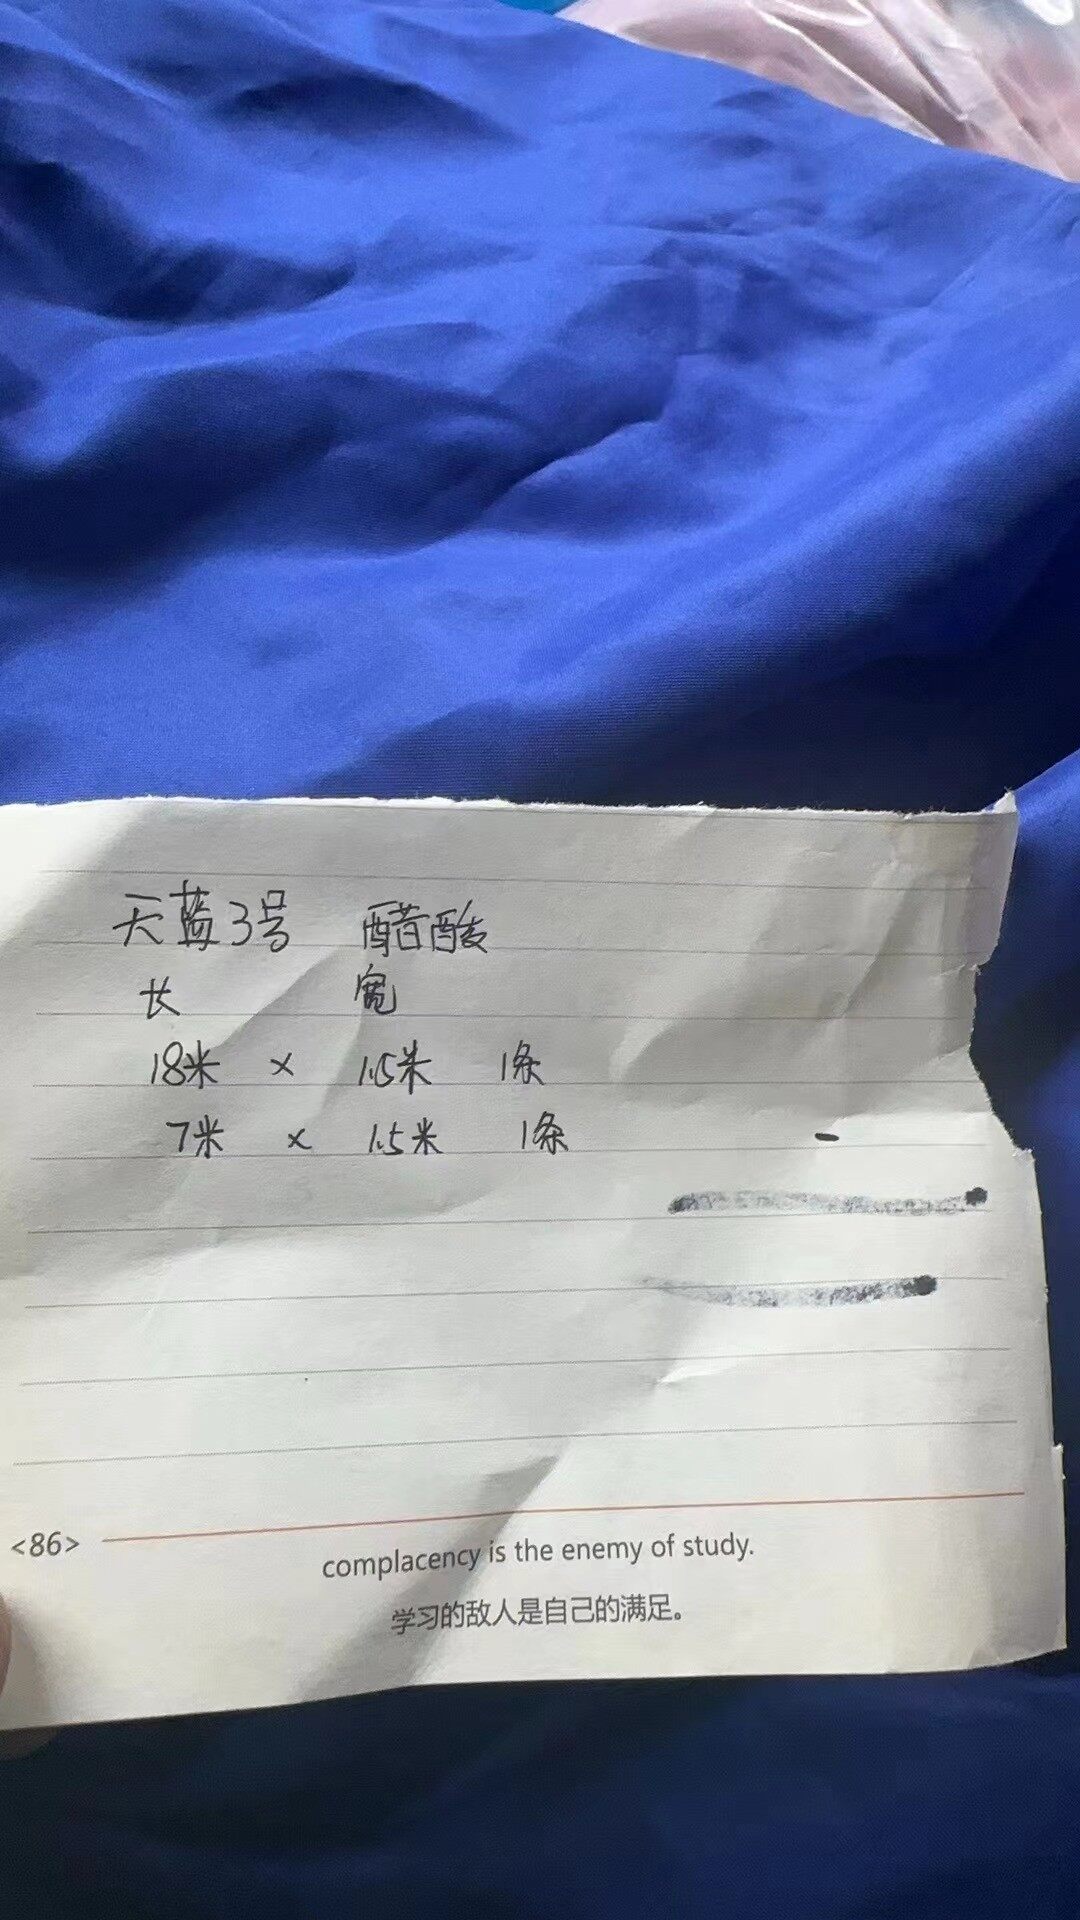 天蓝3号 醋酸
长 宽
18米 × 1.5米 1条
7米 × 1.5米 1条
<86>
complacency is the enemy of study.
学习的敌人是自己的满足。